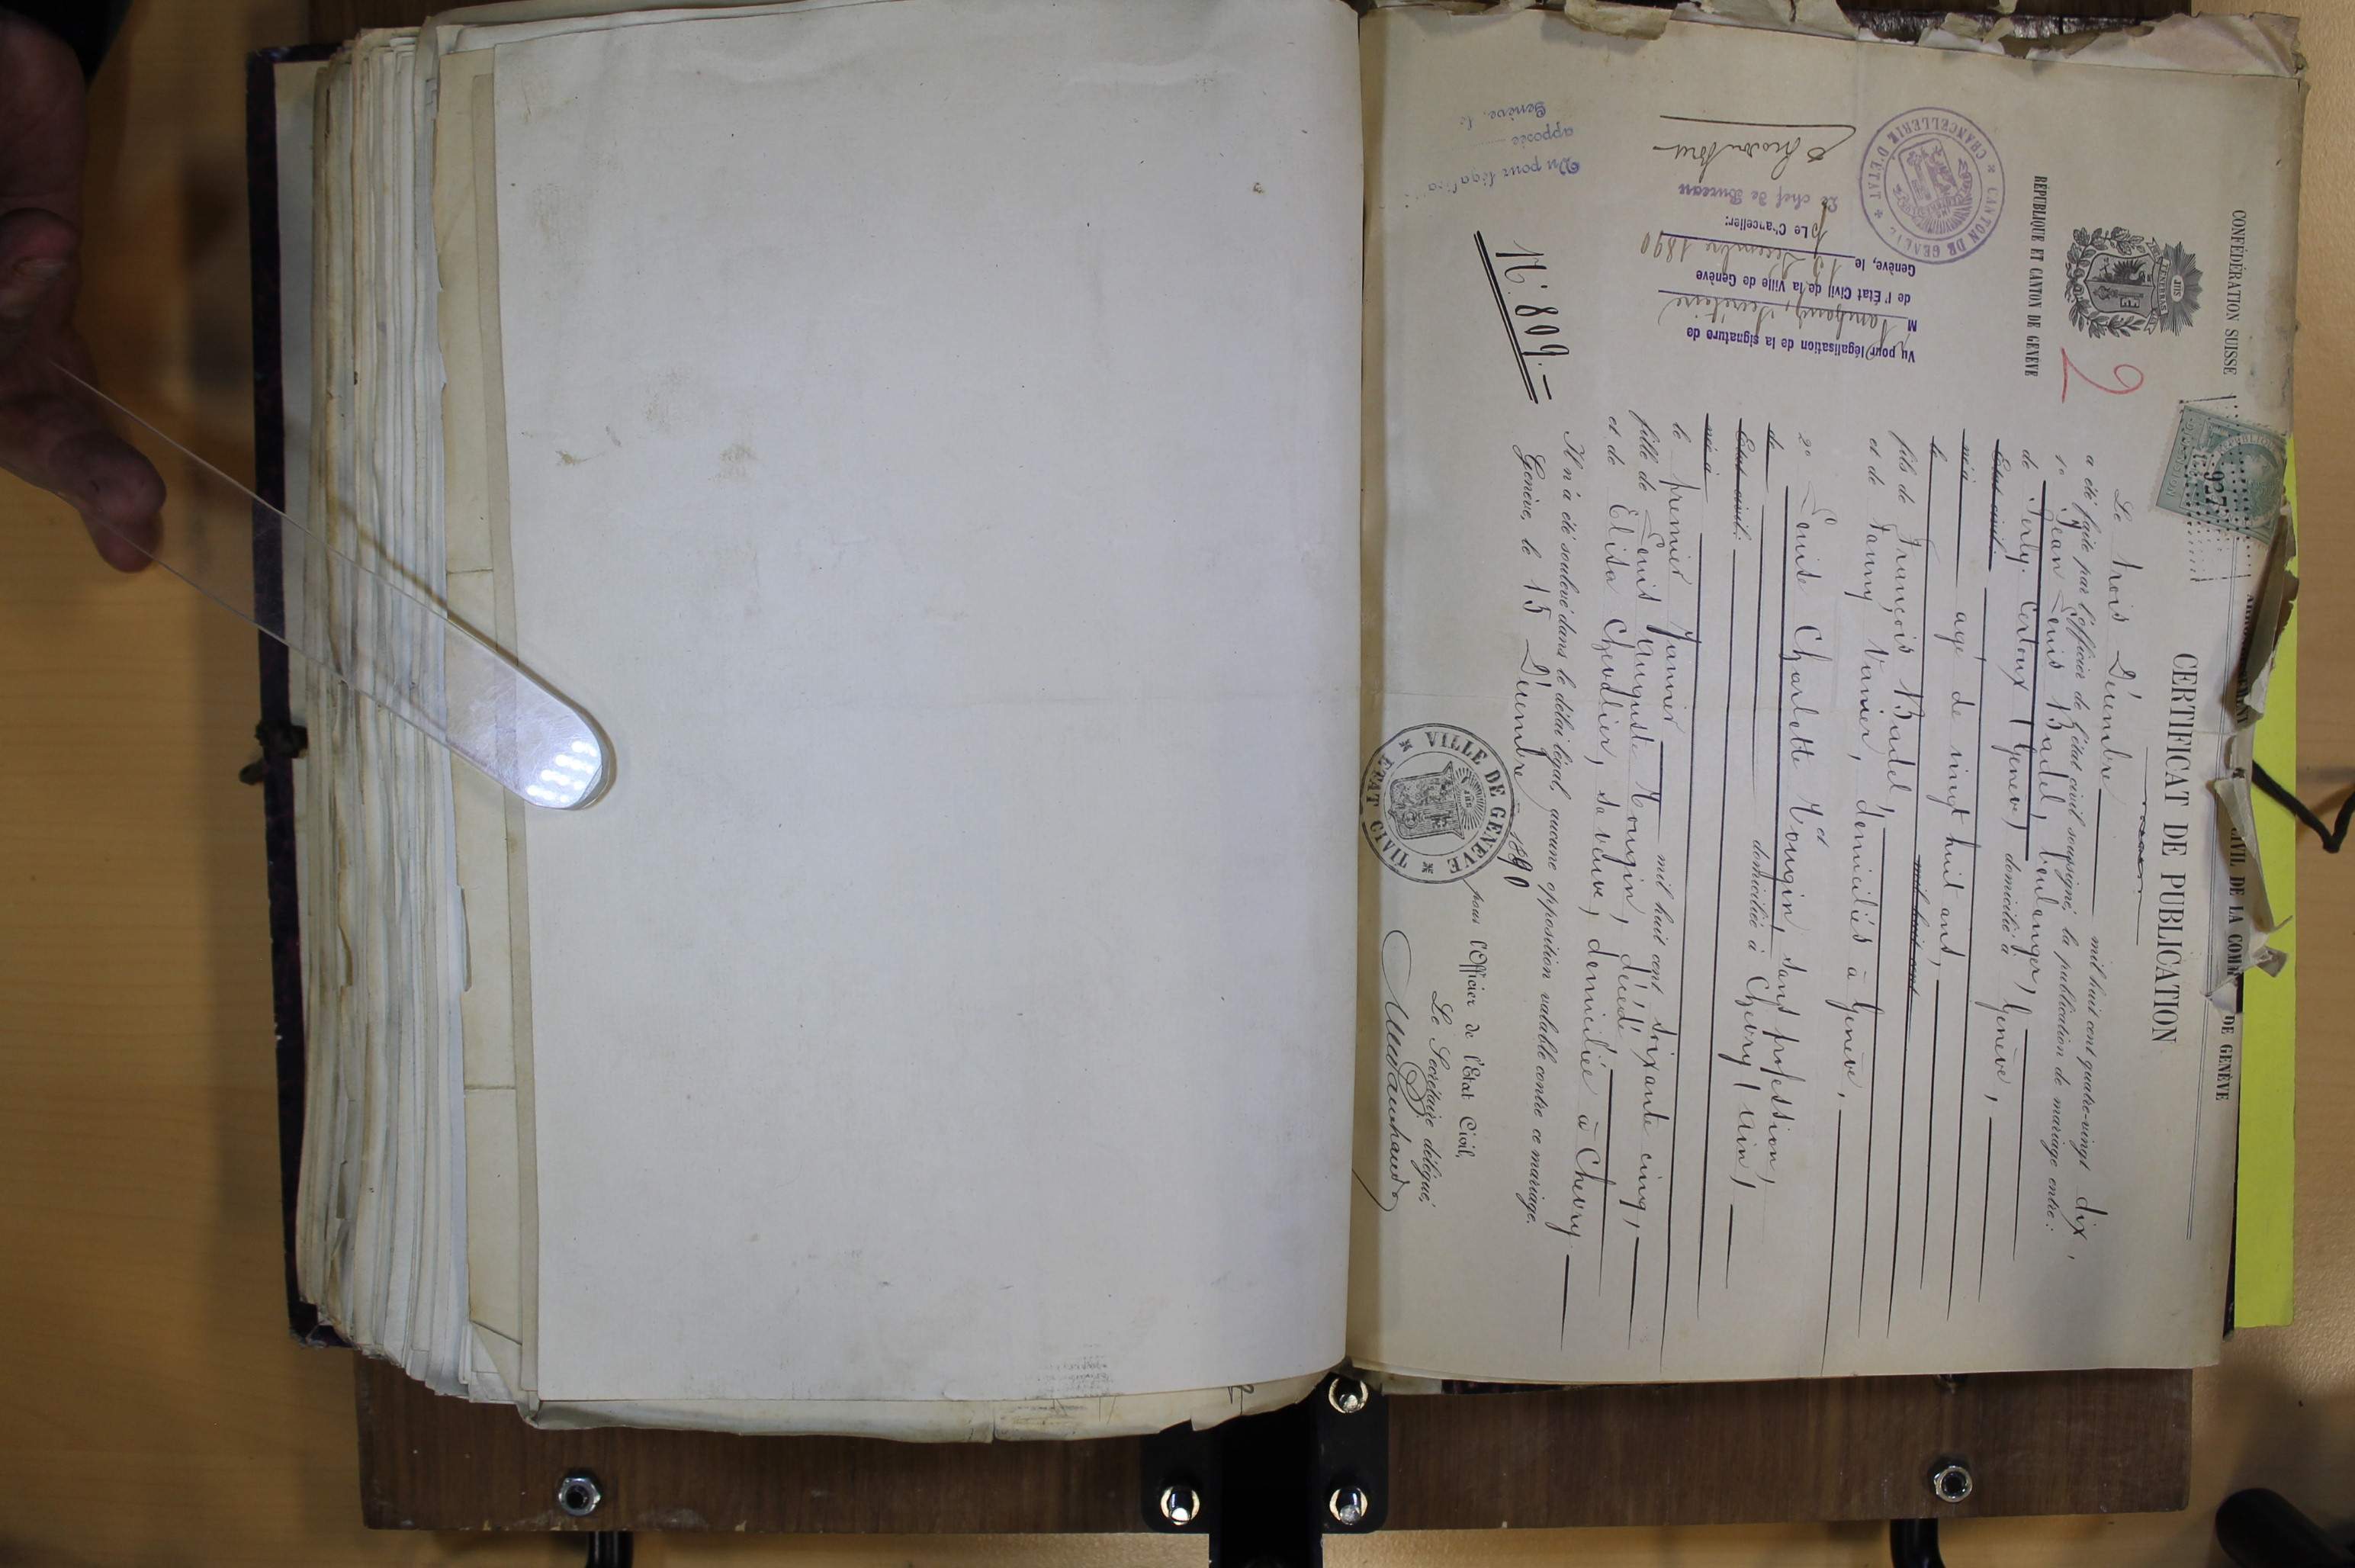 CONFÉDÉRATION SUISSE
RÉPUBLIQUE ET CANTON DE GENÈVE
2
CIVIL DE LA COMM DE GENÈVE
CERTIFICAT DE PUBLICATION
Le trois Décembre mil huit cent quatre-vingt dix,
a été faite par l'officier de l'état civil soussigné, la publication de mariage entre:
1º Jean Louis Badel, boulanger,
de Perly-Certoux (Genève) domicilié à Genève,
Etat civil:
né à agé de vingt huit ans,
le mil huit cent
fils de François Badel,
et de Fanny Vunier, domiciliés à Genève,
2º Louise Charlotte Mongin, sans profession,
de domiciliée à Chevry (Ain),
Etat civil:
née à
le premier Janvier mil huit cent soixante cinq,
fille de Louis Auguste Mongin, décédé,
et de Elisa Chevalier, sa veuve, domiciliée à Chevry
Il n'a été soulevé dans le délai légal, aucune opposition valable contre ce mariage.
Genève, le 15 Décembre 1890
pour l'Officier de l'Etat Civil,
Le Secrétaire délégué,
VILLE DE GENÈVE
ETAT CIVIL
Nº 809.-
Vu pour légalisation de la signature de
M
de l'État Civil de la Ville de Genève
Genève, le 15 Décembre 1890
p Le Chancelier:
Le chef de Bureau
CANTON DE GENÈVE
CHANCELLERIE D'ETAT
Vu pour légalisa
apposée
Genève, le
927